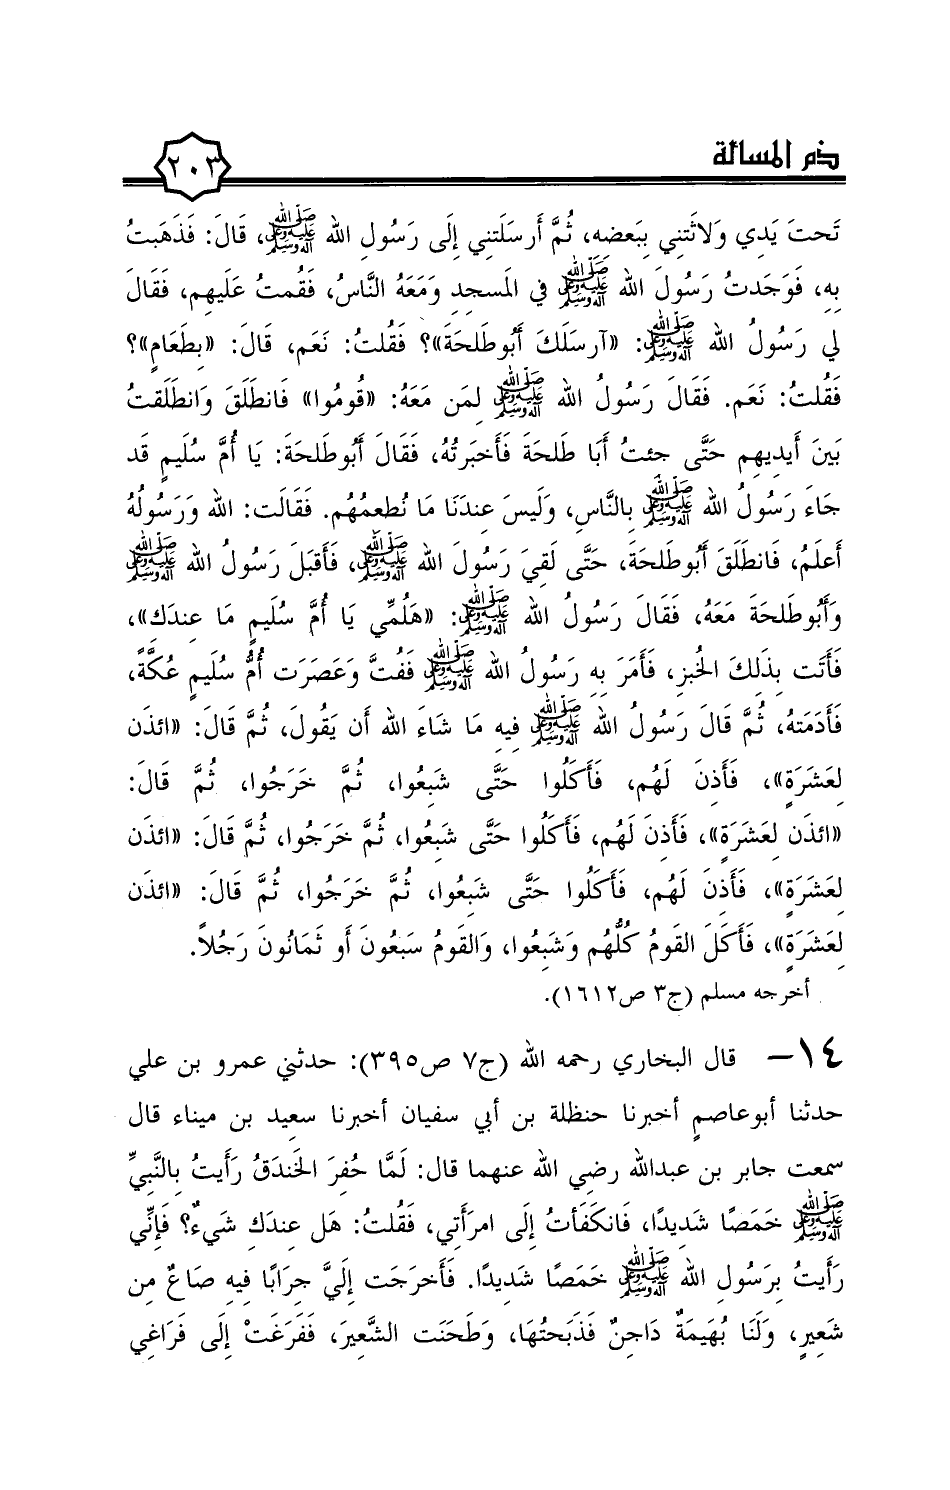 ذم المسألة
٢٠٣
تَحتَ يَدِي وَلاثَتنِي بِبَعضِه، ثُمَّ أَرسَلَتنِي إِلَى رَسُولِ الله ﷺ، قَالَ: فَذَهَبتُ
بِه، فَوَجَدتُ رَسُولَ الله ﷺ في المَسجِدِ وَمَعَهُ النَّاسُ، فَقُمتُ عَلَيهِم، فَقَالَ
لي رَسُولُ الله ﷺ: «آرسَلَكَ أَبُوطَلحَةَ»؟ فَقُلتُ: نَعَم، قَالَ: «بِطَعَامٍ»؟
فَقُلتُ: نَعَم. فَقَالَ رَسُولُ الله ﷺ لِمَن مَعَهُ: «قُومُوا» فَانطَلَقَ وَانطَلَقتُ
بَينَ أَيدِيهِم حَتَّى جِئتُ أَبَا طَلحَةَ فَأَخبَرتُهُ، فَقَالَ أَبُوطَلحَةَ: يَا أُمَّ سُلَيمٍ قَد
جَاءَ رَسُولُ الله ﷺ بِالنَّاسِ، وَلَيسَ عِندَنَا مَا نُطعِمُهُم. فَقَالَت: الله وَرَسُولُهُ
أَعلَمُ، فَانطَلَقَ أَبُوطَلحَةَ، حَتَّى لَقِيَ رَسُولَ الله ﷺ، فَأَقبَلَ رَسُولُ الله ﷺ
وَأَبُوطَلحَةَ مَعَهُ، فَقَالَ رَسُولُ الله ﷺ: «هَلُمِّي يَا أُمَّ سُلَيمٍ مَا عِندَكِ»،
فَأَتَت بِذَلِكَ الخُبزِ، فَأَمَرَ بِهِ رَسُولُ الله ﷺ فَفُتَّ وَعَصَرَت أُمُّ سُلَيمٍ عُكَّةً،
فَأَدَمَتهُ، ثُمَّ قَالَ رَسُولُ الله ﷺ فِيهِ مَا شَاءَ الله أَن يَقُولَ، ثُمَّ قَالَ: «ائذَن
لِعَشَرَةٍ»، فَأَذِنَ لَهُم، فَأَكَلُوا حَتَّى شَبِعُوا، ثُمَّ خَرَجُوا، ثُمَّ قَالَ:
«ائذَن لِعَشَرَةٍ»، فَأَذِنَ لَهُم، فَأَكَلُوا حَتَّى شَبِعُوا، ثُمَّ خَرَجُوا، ثُمَّ قَالَ: «ائذَن
لِعَشَرَةٍ»، فَأَذِنَ لَهُم، فَأَكَلُوا حَتَّى شَبِعُوا، ثُمَّ خَرَجُوا، ثُمَّ قَالَ: «ائذَن
لِعَشَرَةٍ»، فَأَكَلَ القَومُ كُلُّهُم وَشَبِعُوا، وَالقَومُ سَبعُونَ أَو ثَمَانُونَ رَجُلاً.
أخرجه مسلم (ج٣ ص١٦١٢).
١٤- قال البخاري رحمه الله (ج٧ ص٣٩٥): حدثني عمرو بن علي
حدثنا أبوعاصم أخبرنا حنظلة بن أبي سفيان أخبرنا سعيد بن ميناء قال
سمعت جابر بن عبدالله رضي الله عنهما قال: لَمَّا حُفِرَ الخَندَقُ رَأَيتُ بِالنَّبِيِّ
ﷺ خَمَصًا شَدِيدًا، فَانكَفَأتُ إِلَى امرَأَتِي، فَقُلتُ: هَل عِندَكِ شَيءٌ؟ فَإِنِّي
رَأَيتُ بِرَسُولِ الله ﷺ خَمَصًا شَدِيدًا. فَأَخرَجَت إِلَيَّ جِرَابًا فِيهِ صَاعٌ مِن
شَعِيرٍ، وَلَنَا بُهَيمَةٌ دَاجِنٌ فَذَبَحتُهَا، وَطَحَنَت الشَّعِيرَ، فَفَرَغَتْ إِلَى فَرَاغِي